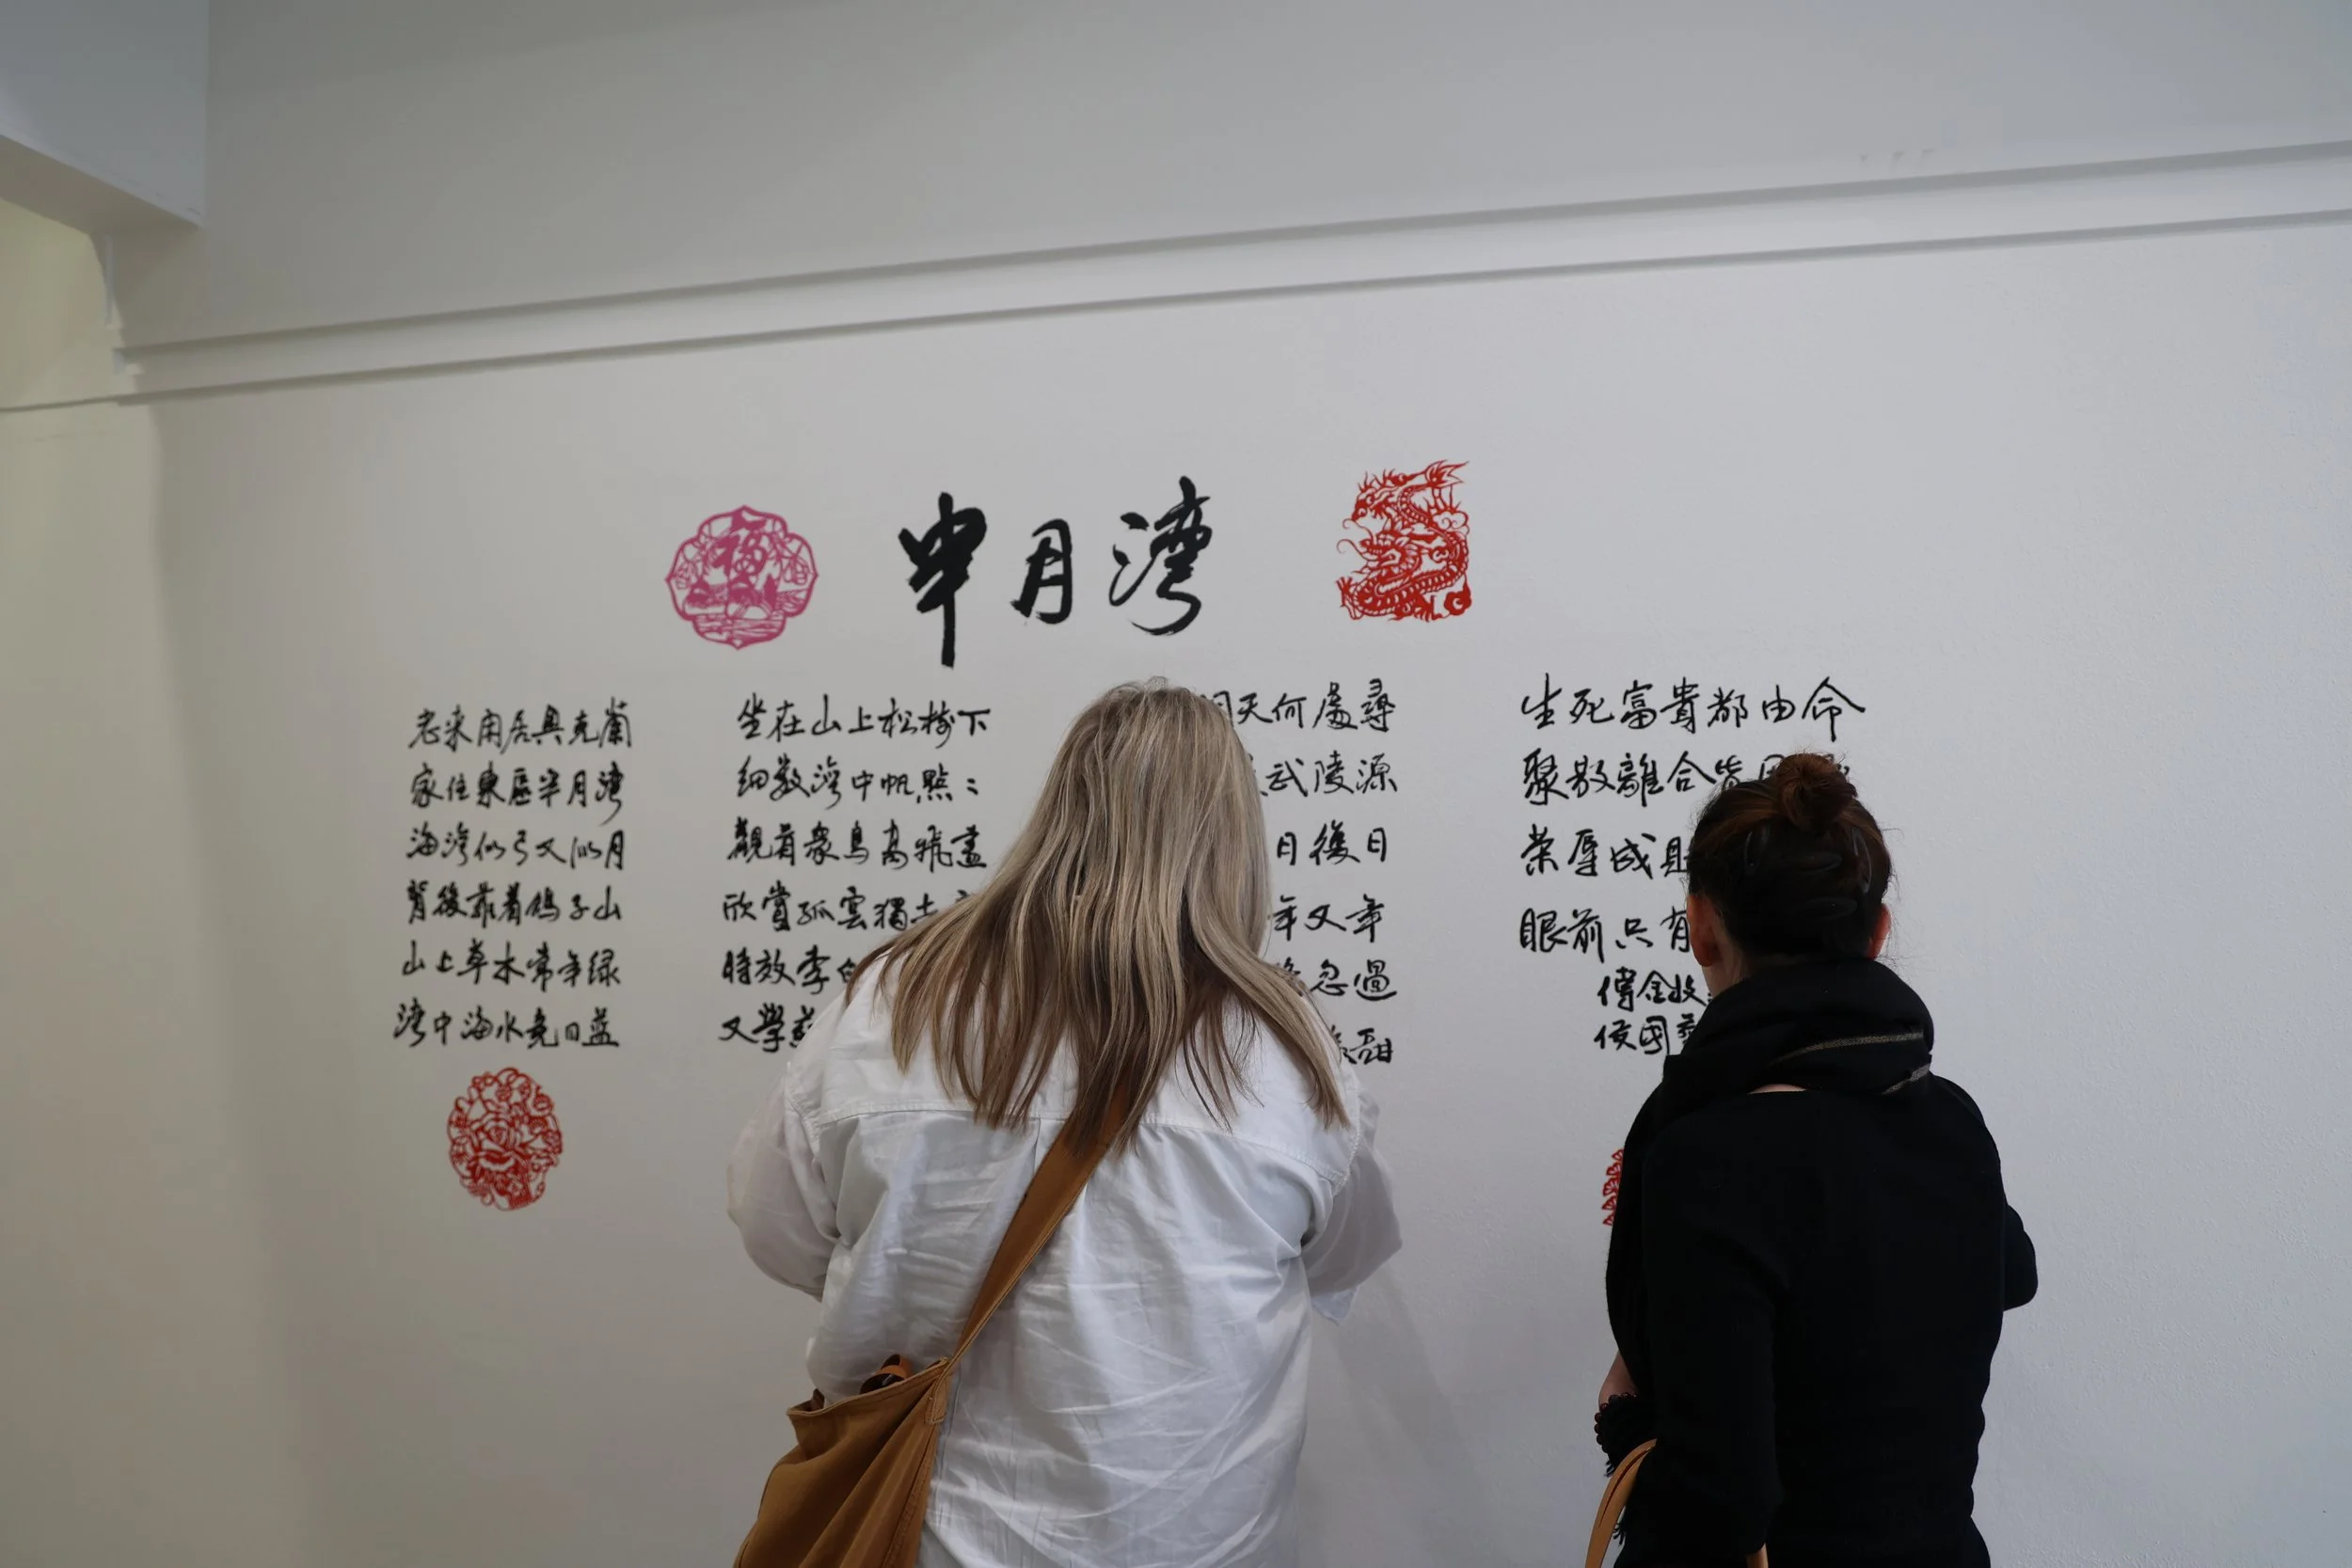 福
半月湾
老来闲居奥克蘭
家住東區半月湾
海湾似弓又似月
背後靠着鴿子山
山上草木常年绿
湾中海水盡日蓝
坐在山上松樹下
细数湾中帆點々
觀看衆鳥高飛盡
欣賞孤雲獨去
時效李白
又學
天何處尋
武陵源
日復日
年又年
忽過
甜
生死富貴都由命
聚散離合皆
荣辱成敗
眼前只有
傅金枝
侯國